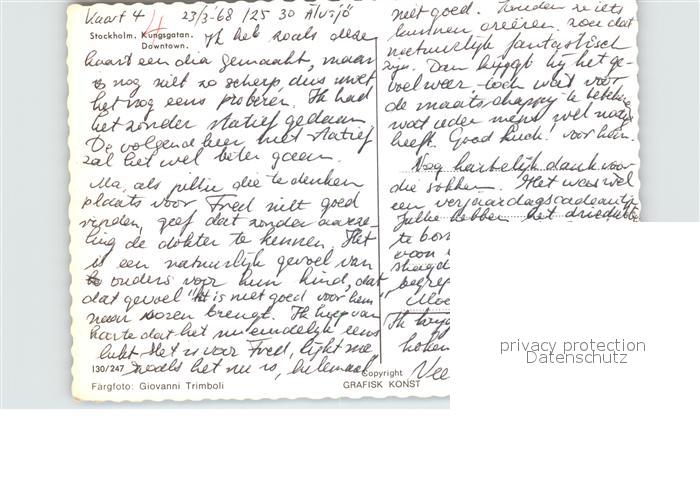 Kaart 4 23/3-'68 /25 30 Älvsjö
Stockholm. Kungsgatan.
Downtown.
Ik heb zoals deze
kaart een dia gemaakt, maar
is nog niet zo scherp, dus moet
het nog eens proberen. Ik had
het zonder statief gedaan.
De volgende keer met statief
zal het wel beter gaan.
Ma, als jullie die te denken
plaats voor Fred niet goed
vinden, geef dat zonder
de dokter te kennen. Het
is een natuurlijk gevoel van
ouders voor hun kind, dat
dat gevoel "het is niet goed voor hem"
naar boven brengt. Ik hoop van
harte dat het nu eindelijk eens
lukt. Het is voor Fred, lijkt me
zoals het nu is, helemaal
130/247
Färgfoto: Giovanni Trimboli
niet goed. Zouden ze iets
kunnen creëren, zou dat
natuurlijk fantastisch
zijn. Dan krijgt hij het ge-
voel weer, toch wat voor
de maatschappij te betekenen
wat ieder mens wel nodig
heeft. Good luck! voor hem.
Nog hartelijk dank voor
die sokken. Het was wel
een verjaardagscadeautje
Jullie hebben het driedubbel
te
voor
Ik
Copyright
GRAFISK KONST
Vee
privacy protection
Datenschutz